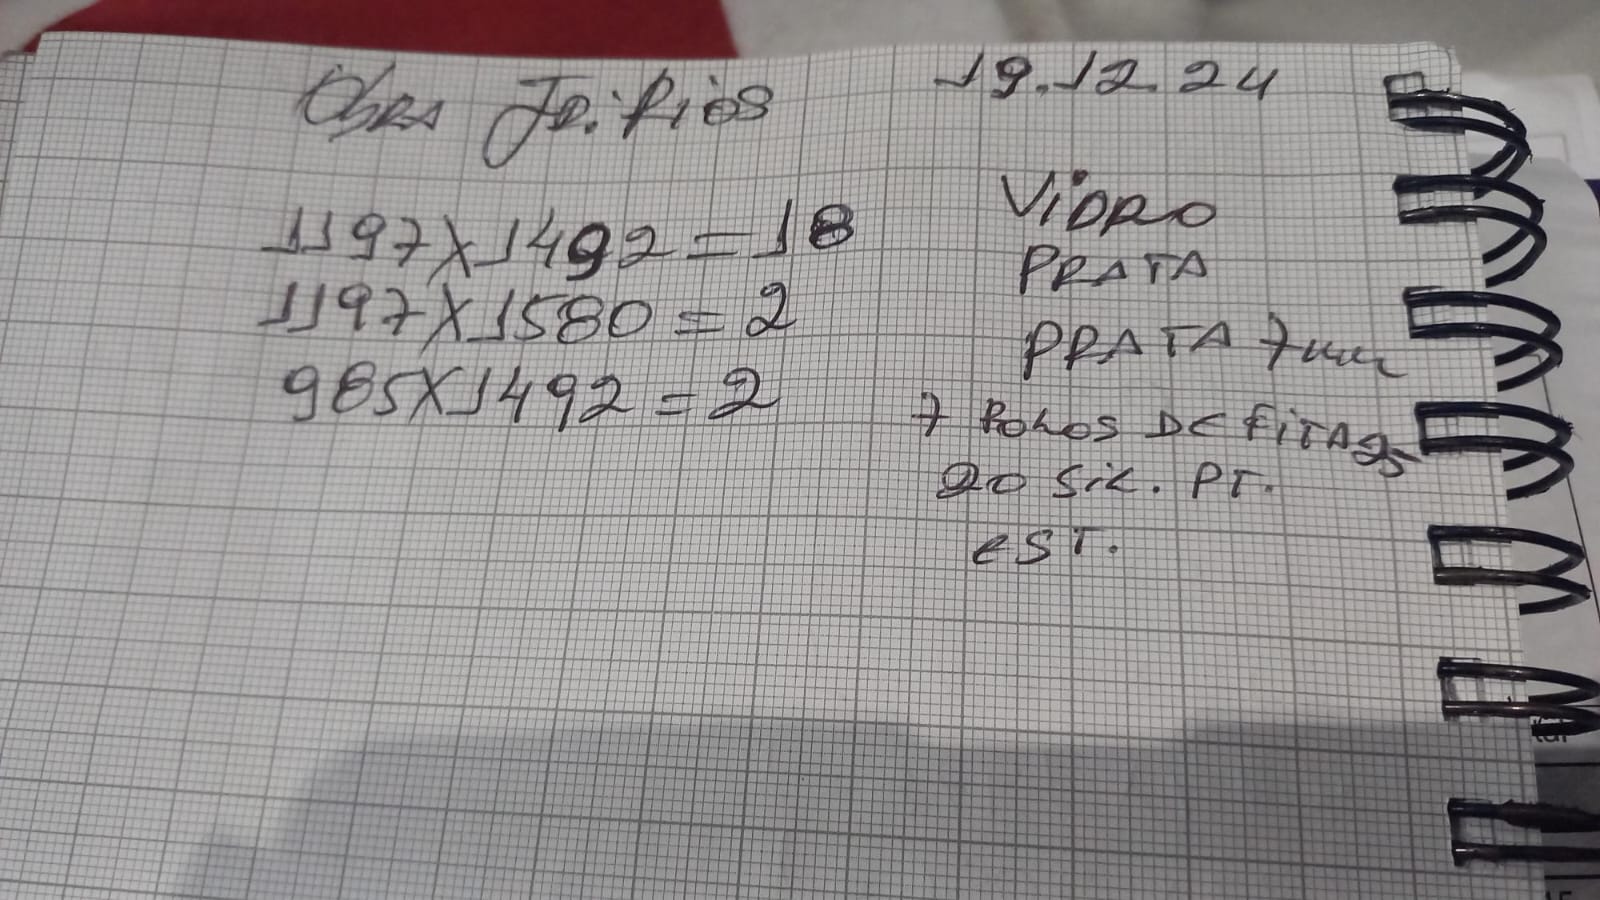 Obra Jd. Rios 19.12.24
1197X1492=18
1197X1580=2
985X1492=2
VIDRO
PRATA
PRATA 7mm
7 ROLOS DE FITA 25
20 SIL. PT.
EST.